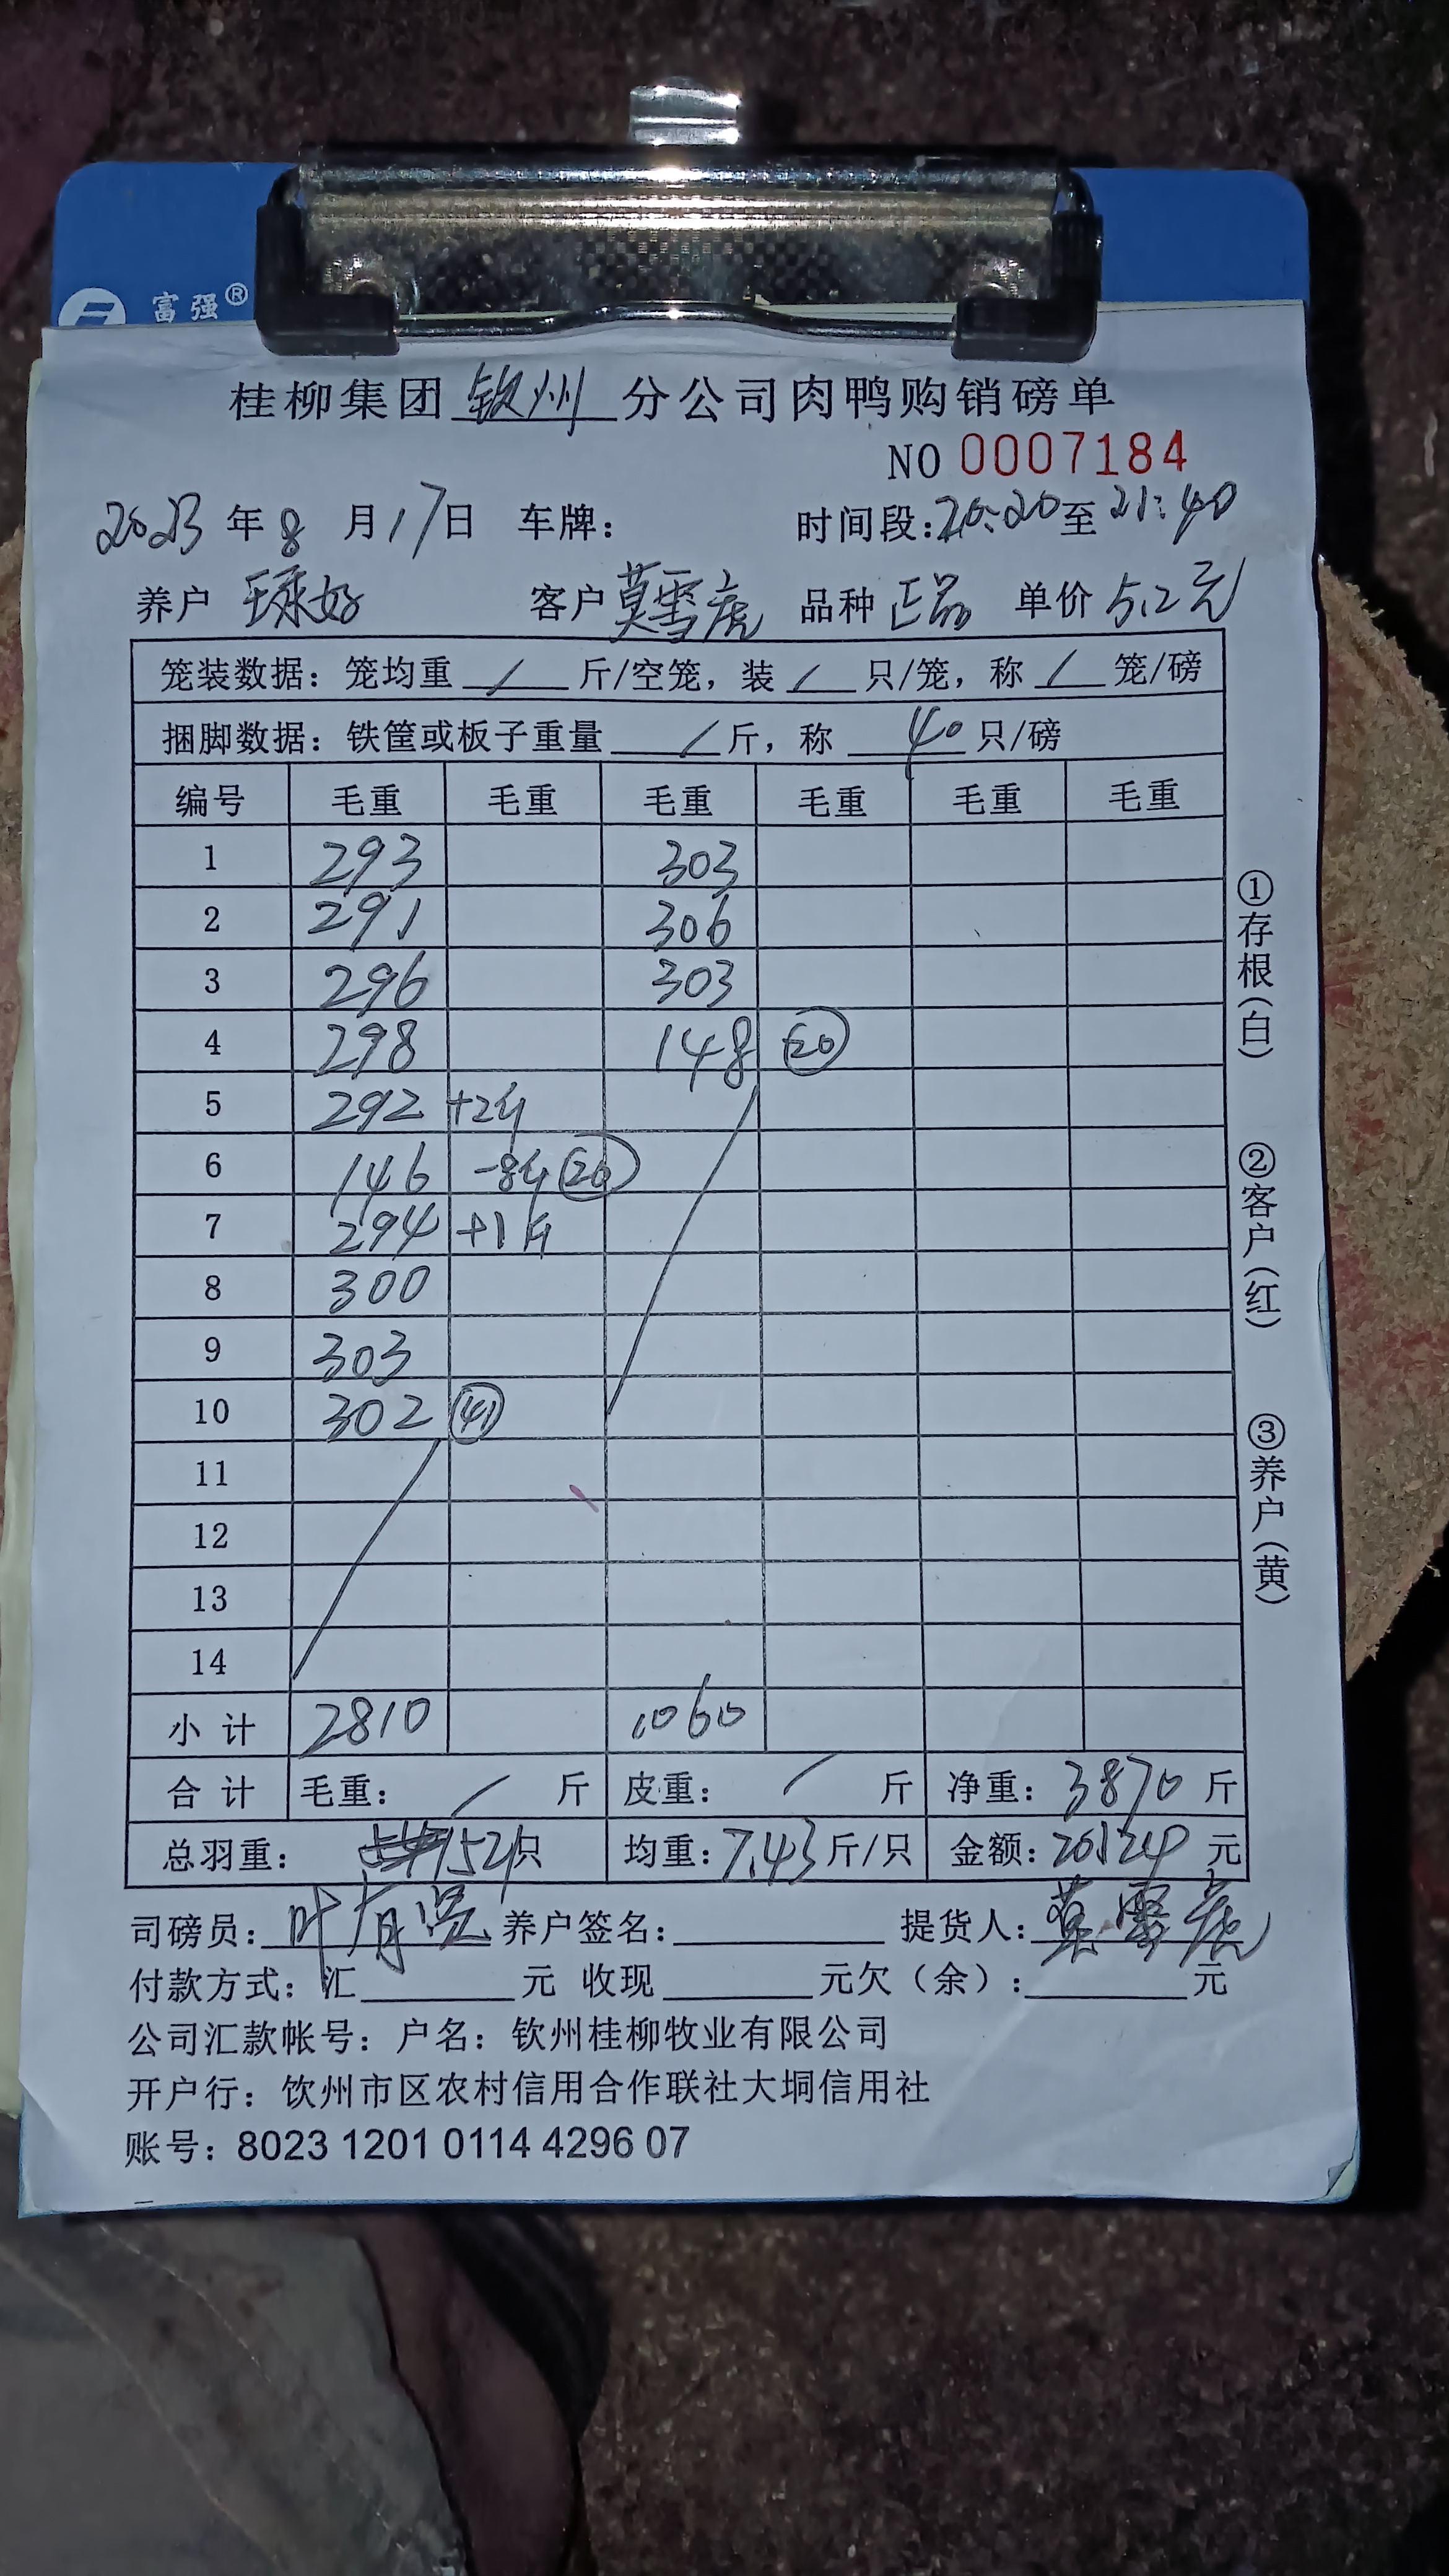 富强®
桂柳集团 钦州 分公司肉鸭购销磅单
NO 0007184
2023 年 8 月 17 日 车牌： 时间段：20:20 至 21:40
养户 客户 莫雪虎 品种 正品 单价 5.2元
笼装数据：笼均重 / 斤/空笼，装 / 只/笼，称 / 笼/磅
捆脚数据：铁筐或板子重量 / 斤，称 40 只/磅
编号 毛重 毛重 毛重 毛重 毛重 毛重
1 293 303
2 291 306
3 296 303
4 298 148 20
5 292 +2斤
6 146 -8斤 20
7 294 +1斤
8 300
9 303
10 302 41
11
12
13
14
小计 2810 1060
合计 毛重： / 斤 皮重： / 斤 净重：3870 斤
总羽重： 521只 均重：7.43斤/只 金额：20124 元
司磅员： 养户签名： 提货人：莫雪虎
付款方式：汇 元 收现 元欠（余）： 元
公司汇款帐号：户名：钦州桂柳牧业有限公司
开户行：饮州市区农村信用合作联社大垌信用社
账号：8023 1201 0114 4296 07
①存根（白）
②客户（红）
③养户（黄）